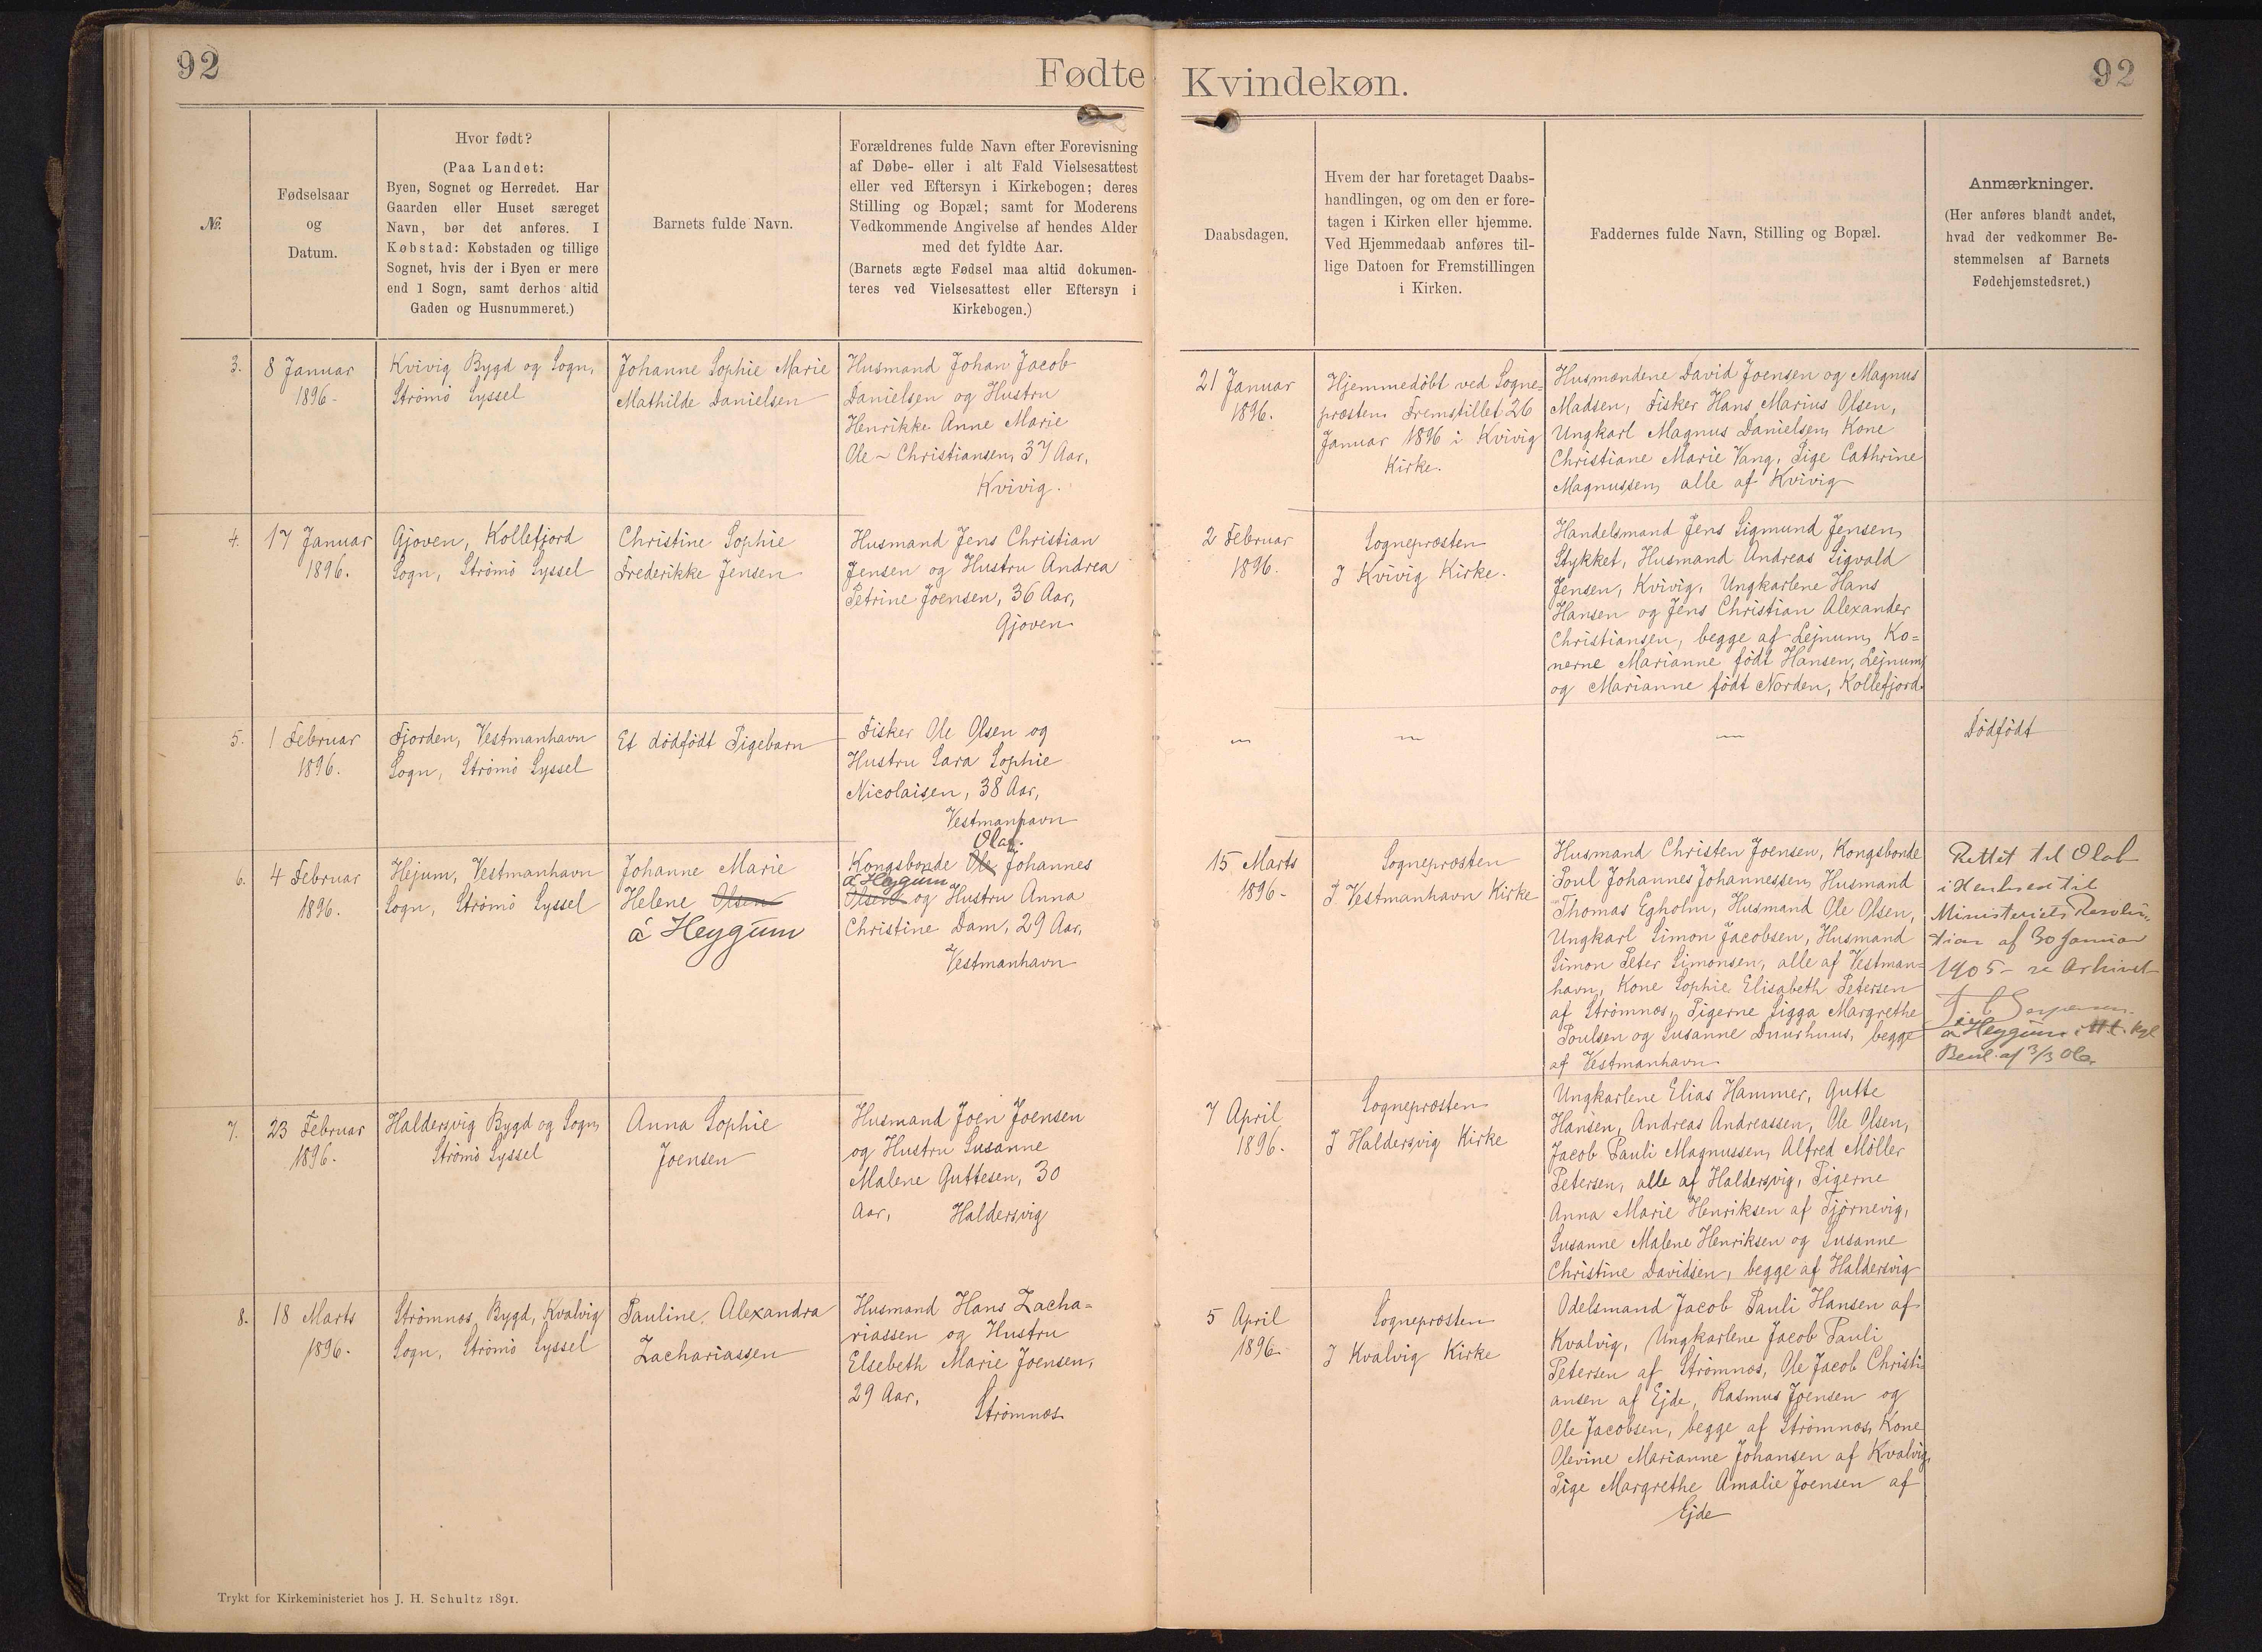 92
Fødte
Kvindekøn.
92
№.
Fødselsaar
og
Datum.
Hvor født?
(Paa Landet:
Byen, Sognet og Herredet. Har
Gaarden eller Huset særeget
Navn, bør det anføres. I
Købstad: Købstaden og tillige
Sognet, hvis der i Byen er mere
end 1 Sogn, samt derhos altid
Gaden og Husnummeret.)
Barnets fulde Navn.
Forældrenes fulde Navn efter Forevisning
af Døbe- eller i alt Fald Vielsesattest
eller ved Eftersyn i Kirkebogen; deres
Stilling og Bopæl; samt for Moderens
Vedkommende Angivelse af hendes Alder
med det fyldte Aar.
(Barnets ægte Fødsel maa altid dokumen-
teres ved Vielsesattest eller Eftersyn i
Kirkebogen.)
Daabsdagen.
Hvem der har foretaget Daabs-
handlingen, og om den er fore-
tagen i Kirken eller hjemme.
Ved Hjemmedaab anføres til-
lige Datoen for Fremstillingen
i Kirken.
Faddernes fulde Navn, Stilling og Bopæl.
Anmærkninger.
(Her anføres blandt andet,
hvad der vedkommer Be-
stemmelsen af Barnets
Fødehjemstedsret.)
3.
8 Januar
1896.
Kvivig Bygd og Sogn,
Strömö Syssel
Johanne Sophie Marie
Mathilde Danielsen
Husmand Johan Jacob
Danielsen og Hustru
Henrikke Anne Marie
Ole- Christiansen, 37 Aar,
Kvivig.
21 Januar
1896.
Hjemmedöbt ved Sogne=
præsten. Fremstillet 26
Januar 1896 i Kvivig
Kirke.
Husmændene David Joensen og Magnus
Madsen, Fisker Hans Marius Olsen,
Ungkarl Magnus Danielsen, Kone
Christiane Marie Vang, Pige Cathrine
Magnussen, alle af Kvivig
4.
17 Januar
1896.
Gjoven, Kollefjord
Sogn, Strömö Syssel
Christine Sophie
Frederikke Jensen
Husmand Jens Christian
Jensen og Hustru Andrea
Petrine Joensen, 36 Aar,
Gjoven
2 Februar
1896.
Sognepræsten
I Kvivig Kirke.
Handelsmand Jens Sigmund Jensen,
Stykket, Husmand Andreas Sigvald
Jensen, Kvivig, Ungkarlene Hans
Hansen og Jens Christian Alexander
Christiansen, begge af Lejnum, Ko=
nerne Marianne född Hansen, Lejnum,
og Marianne född Norden, Kollefjord.
5.
1 Februar
1896.
Fjorden, Vestmanhavn
Sogn, Strömö Syssel
Et dödfödt Pigebarn
Fisker Ole Olsen og
Hustru Sara Sophie
Nicolaisen, 38 Aar,
Vestmanhavn
Dödfödt
6.
4 Februar
1896.
Hejum, Vestmanhavn
Sogn, Strömö Syssel
Johanne Marie
Helene Olsen
á Heygum
Olaf
Kongsbonde Ole Johannes
á Heygum
Olsen og Hustru Anna
Christine Dam, 29 Aar,
Vestmanhavn
15 Marts
1896.
Sognepræsten
I Vestmanhavn Kirke
Husmand Christen Joensen, Kongsbonde
Poul Johannes Johannessen, Husmand
Thomas Egholm, Husmand Ole Olsen,
Ungkarl Simon Jacobsen, Husmand
Simon Peter Simonsen, alle af Vestman=
havn, Kone Sophie Elisabeth Petersen
af Strömnæs, Pigerne Sigga Margrethe
Poulsen og Susanne Duurhuus, begge
af Vestmanhavn
Rettet til Olaf
i Henhold til
Ministeriets Resolu-
tion af 30 Januar
1905
á Heygum
7.
23 Februar
1896.
Haldersvig Bygd og Sogn,
Strömö Syssel
Anna Sophie
Joensen
Husmand Joen Joensen
og Hustru Susanne
Malene Guttesen, 30
Aar, Haldersvig
7 April
1896.
Sognepræsten
I Haldersvig Kirke
Ungkarlene Elias Hammer, Gutte
Hansen, Andreas Andreassen, Ole Olsen,
Jacob Pauli Magnussen, Alfred Möller
Petersen, alle af Haldersvig, Pigerne
Anna Marie Henriksen af Tjörnevig,
Susanne Malene Henriksen og Susanne
Christine Davidsen, begge af Haldersvig
8.
18 Marts
1896.
Strömnæs Bygd, Kvalvig
Sogn, Strömö Syssel
Pauline Alexandra
Zachariassen
Husmand Hans Zacha=
riassen og Hustru
Elsebeth Marie Joensen,
29 Aar,
Strömnæs
5 April
1896.
Sognepræsten
I Kvalvig Kirke
Odelsmand Jacob Pauli Hansen af
Kvalvig, Ungkarlene Jacob Pauli
Petersen af Strömnæs, Ole Jacob Christi-
ansen af Ejde, Rasmus Joensen og
Ole Jacobsen, begge af Strömnæs, Kone
Olevine Marianne Johansen af Kvalvig,
Pige Margrethe Amalie Joensen af
Ejde
Trykt for Kirkeministeriet hos J. H. Schultz 1891.